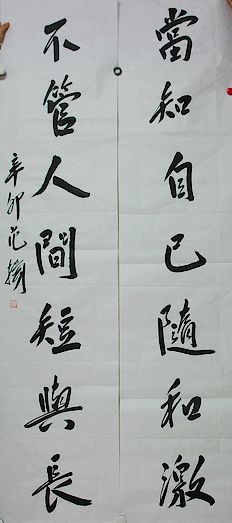 當知自己隨和激
不管人間短與長
辛卯